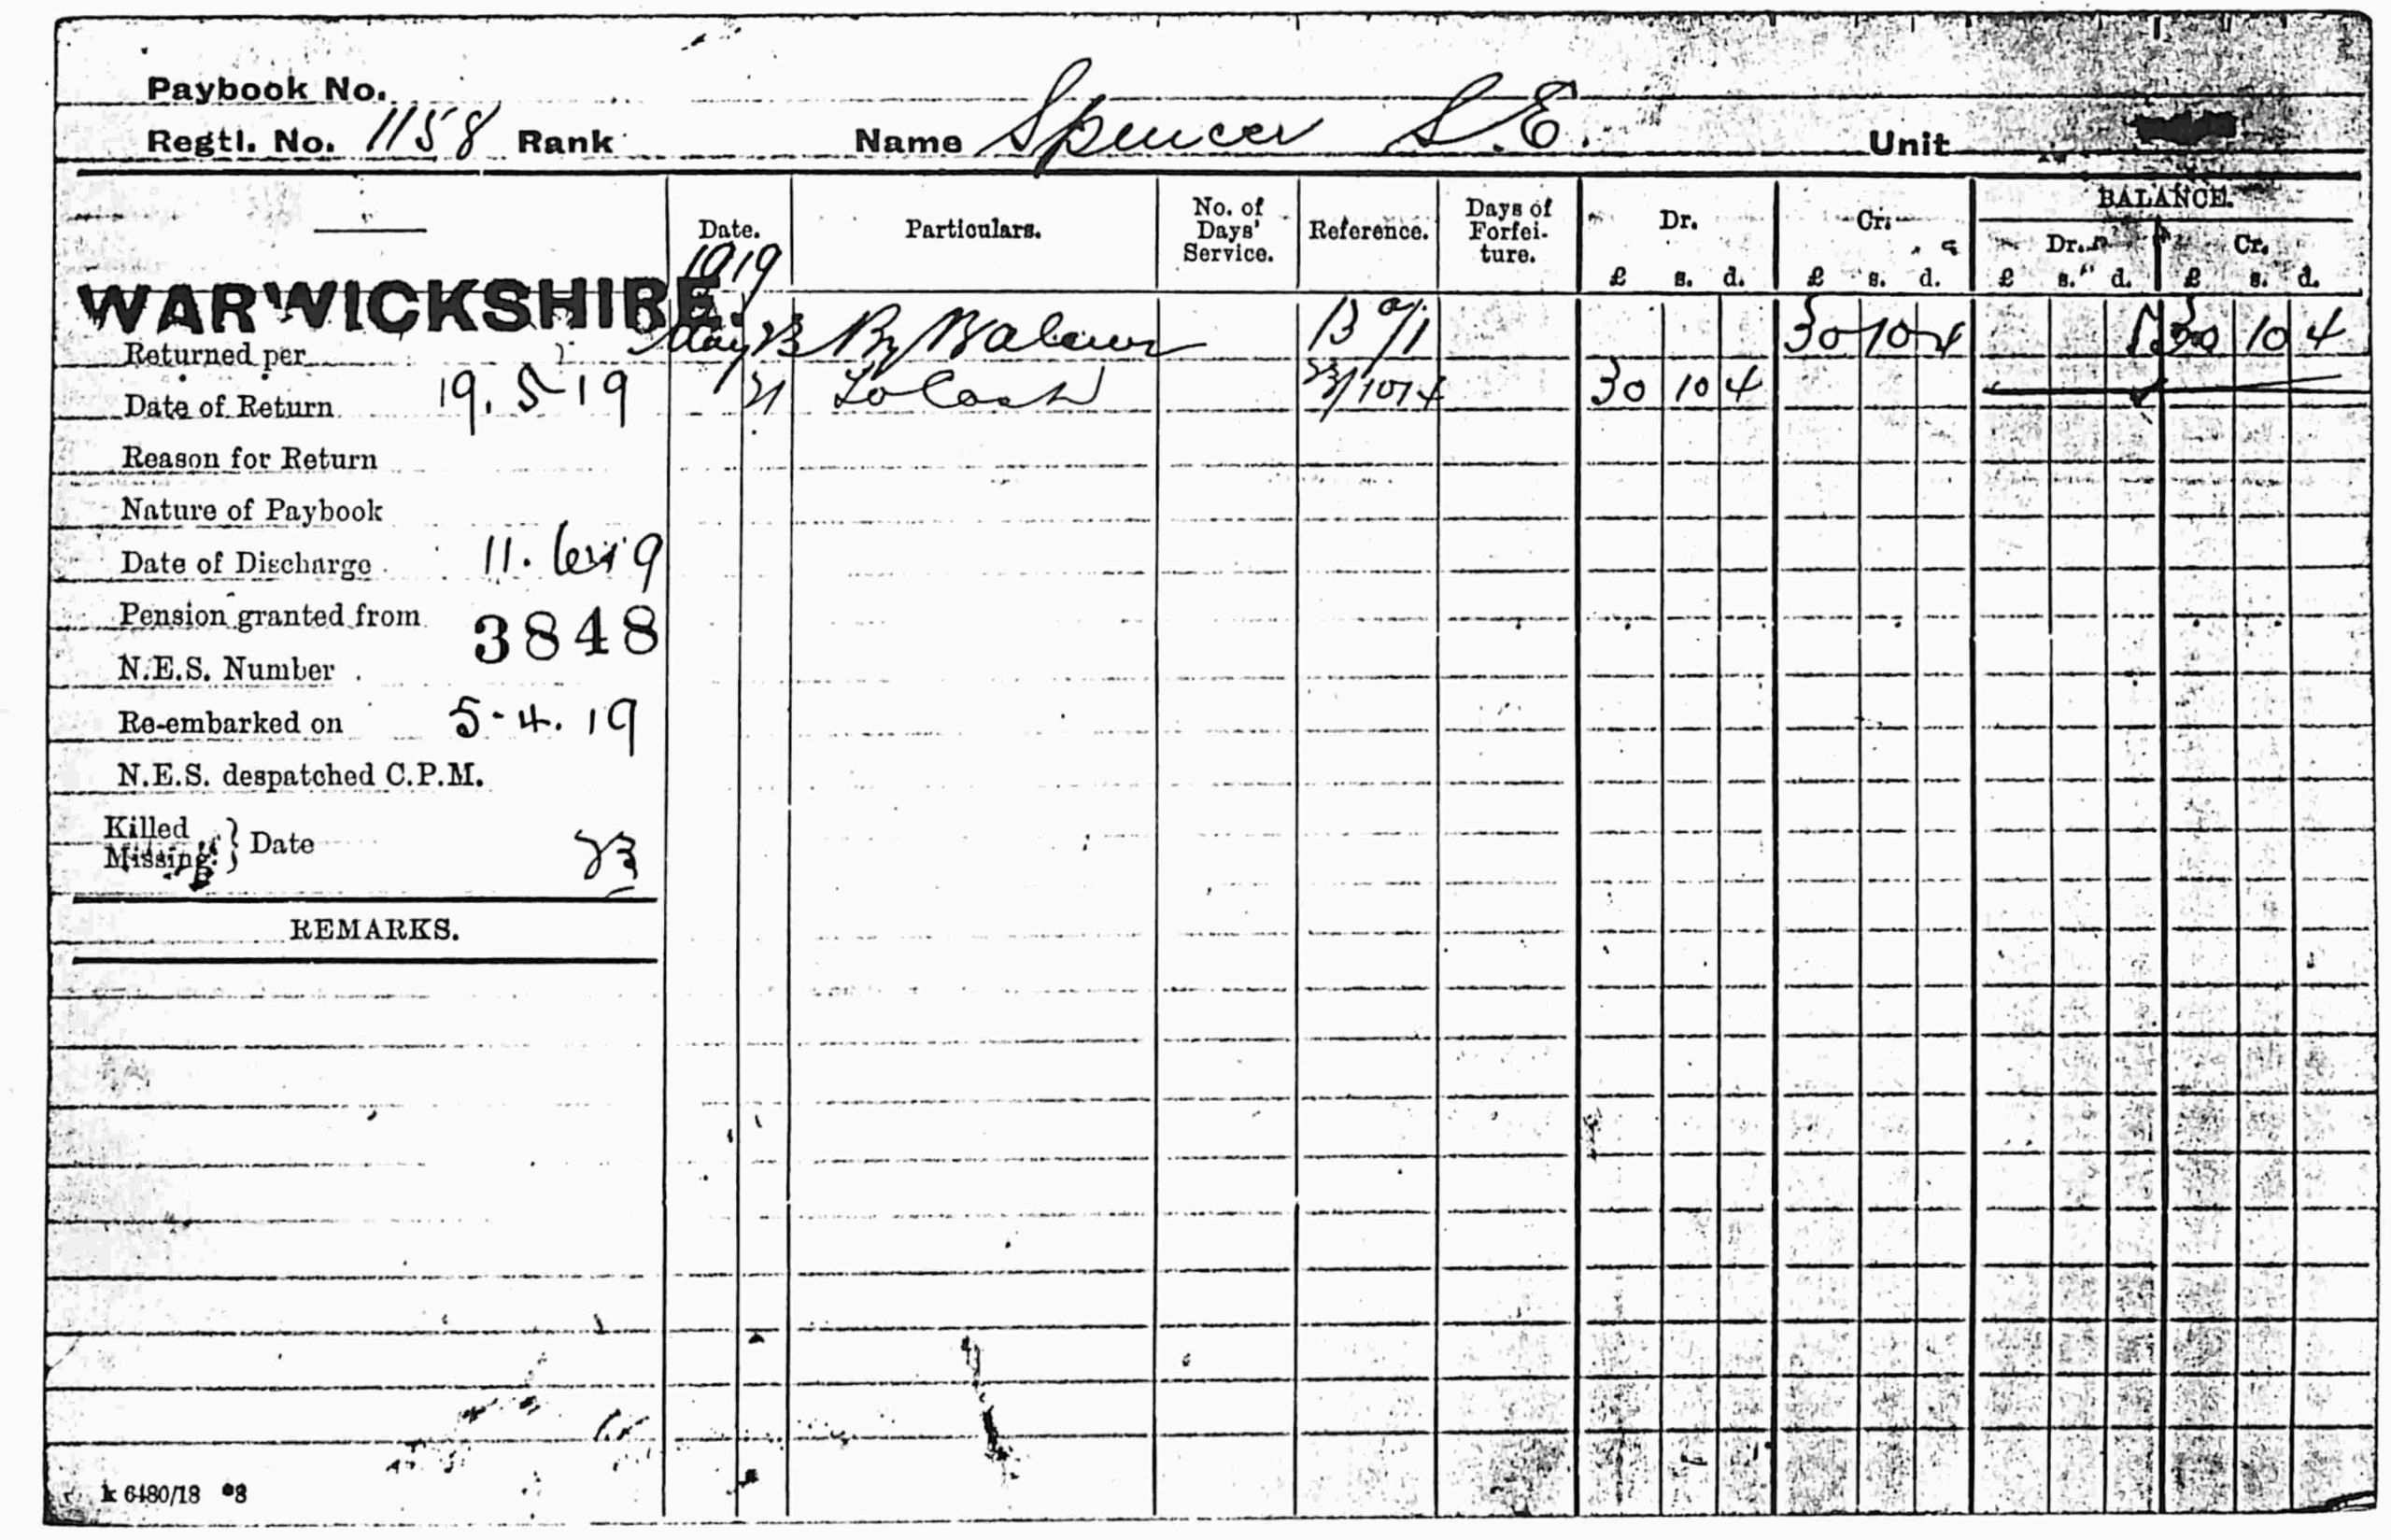 Paybook No.
Regtl. No. 1158 Rank Name Spencer S.E. Unit
Date. Particulars. No. of Days' Service. Reference. Days of Forfei-ture. Dr. Cr. BALANCE.
Dr. Cr.
£ s. d. £ s. d. £ s. d. £ s. d.
1919
WARWICKSHIRE.
May By Balance B 30 10 4 30 10 4
Returned per
21 To Cash 30 10 4
Date of Return 19.5.19
Reason for Return
Nature of Paybook
Date of Discharge 11. 19
Pension granted from
3848
N.E.S. Number
Re-embarked on 5-4.19
N.E.S. despatched C.P.M.
Killed
Missing } Date
REMARKS.
k 6480/18